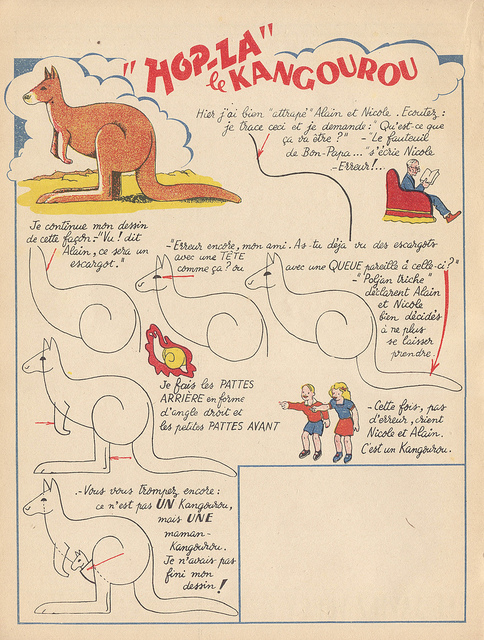 "HOP-LA"
le KANGOUROU
Hier j'ai bien "attrapé" Alain et Nicole. Ecoutez :
je trace ceci et je demande : "Qu'est-ce que
ça va être ?" -"Le fauteuil
de Bon-Papa..." s'écrie Nicole
-Erreur !..
Je continue mon dessin
de cette façon :-"Vu ! dit
Alain, ce sera un
escargot."
-"Erreur encore, mon ami. As-tu déja vu des escargots
avec une TETE
comme ça ? ou
avec une QUEUE pareille à celle-ci ?"
-"Poljan triche"
déclarent Alain
et Nicole
bien décidés
à ne plus
se laisser
prendre.
Je fais les PATTES
ARRIÈRE en forme
d'angle droit et
les petites PATTES AVANT
-Cette fois, pas
d'erreur, crient
Nicole et Alain.
C'est un Kangourou.
-Vous vous trompez encore :
ce n'est pas UN Kangourou,
mais UNE
maman-
Kangourou.
Je n'avais pas
fini mon
dessin !